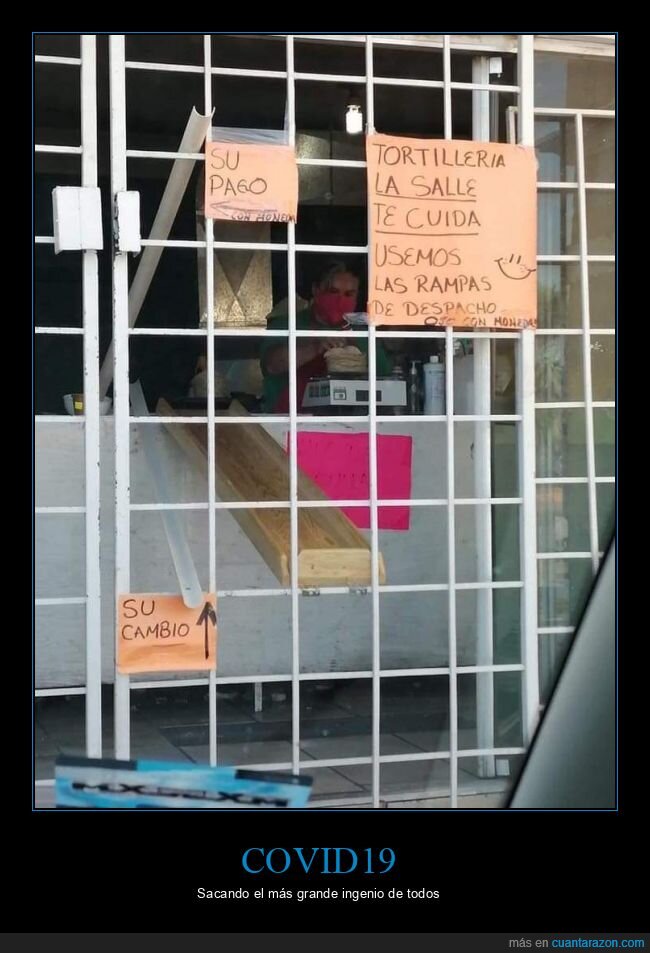 SU
PAGO
CON MONEDA
TORTILLERIA
LA SALLE
TE CUIDA
USEMOS
LAS RAMPAS
DE DESPACHO
OJO CON MONEDAS
SU
CAMBIO
COVID19
Sacando el más grande ingenio de todos
más en cuantarazon.com